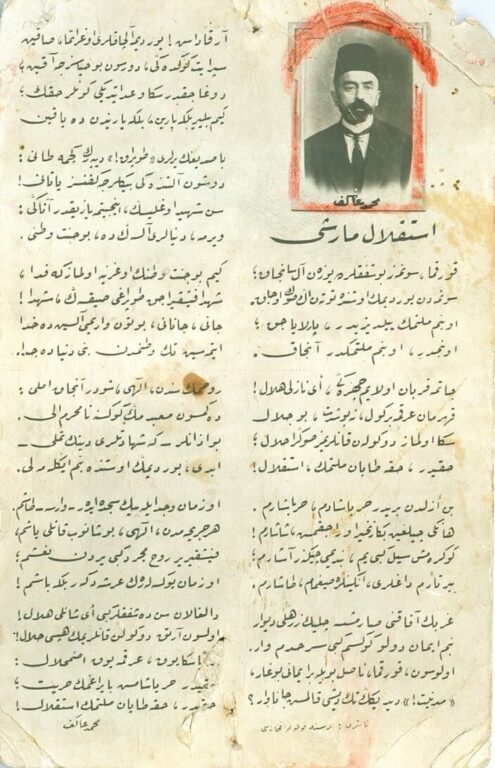 محمد عاكف
استقلال مارشی
قورقما، سونمز بو شفقلرده یوزن آل سانجاق؛
سونمدن یوردیمك اوستنده توتن اڭ صوڭ اوجاق.
او بنم ملتمك ییلدیزیدر، پارلایاجق؛
او بنمدر، او بنم ملتمكدر آنجاق.
چاتما قربان اولایم چهره‌ڭی، ای نازلی هلال!
قهرمان عرقمه بر كول، نه بو شدت، بو جلال
سكا اولماز دوكولن قانلریمز صوڭرا حلال؛
حقیدر، حقه طاپان ملتمك، استقلال!
بن ازلدن بریدر حر یاشادم، حر یاشارم.
هانكی چیلغین بكا زنجیر اوراجقمش، شاشارم!
كوكره‌مش سیل كبی یم، بندیمی چیكنر، آشارم؛
ییرتارم طاغلری، انكینلره صیغمام، طاشارم.
غربك آفاقنی صارمشسه چلیك زرهلی دیوار
بنم ایمان دولو كوكسم كبی سرحدم وار.
اولوسون، قورقما، ناصل بویله بر ایمانی بوغار،
«مدنیت!» دیدیكك تك دیشی قالمش جاناوار؟
آرقاداش! یوردیمه آلچاقلری اوغراتما، صاقین
سپر ایت كوكده‌كی، دورسون بو حیاسزجه آقین؛
دوغاجقدر سكا وعد ایتدیكی كونلر حقك؛
كیم بیلیر، بلكه یارین، بلكه یاریندن ده یاقین
باصدیغك یرلری «طوپراق!» دییه‌رك كچمه طانی:
دوشون آلتنده‌كی بیكلرجه كفنسز یاتانی!
سن شهید اوغلیسك، اینجیتمه، یازیقدر، آتاكی؛
ویرمه، دنیالری آلسه‌ك ده، بو جنت وطنی.
كیم بو جنت وطنك اوغرینه اولماز كه فدا،
شهدا فیشقیراجق طوپراغی صیقسه‌ك، شهدا!
جانی، جانانی، بوتون واریمی آلسین ده خدا
ایتمه‌سین تك وطنمدن بنی دنیاده جدا.
روحمك سندن، الهی، شودر آنجاق املی:
دكمه‌سون معبدیمك كوكسنه نامحرم الی.
بو اذانلر – كه شهادتلری دینك تملی –
ابدی، یوردیمك اوستنده بنم ایكله‌ملی.
او زمان وجد ایله بیك سجده ایدر – وارسه – طاشم.
هر جریحه‌مدن، الهی، بوشانوب قانلی یاشم،
فیشقیریر روح مجرد كبی یردن نعشم؛
او زمان یوكسه‌له‌رك عرشه دكر بلكه باشم!
دالغالان سن ده شفقلر كبی ای شانلی هلال!
اولسون آرتق دوكولن قانلریمك هپسی حلال!
سكا یوق، عرقمه یوق اضمحلال:
حقیدر، حر یاشامش بایراغمك حریت؛
حقیدر، حقه طاپان ملتمك استقلال!
محمد عاكف